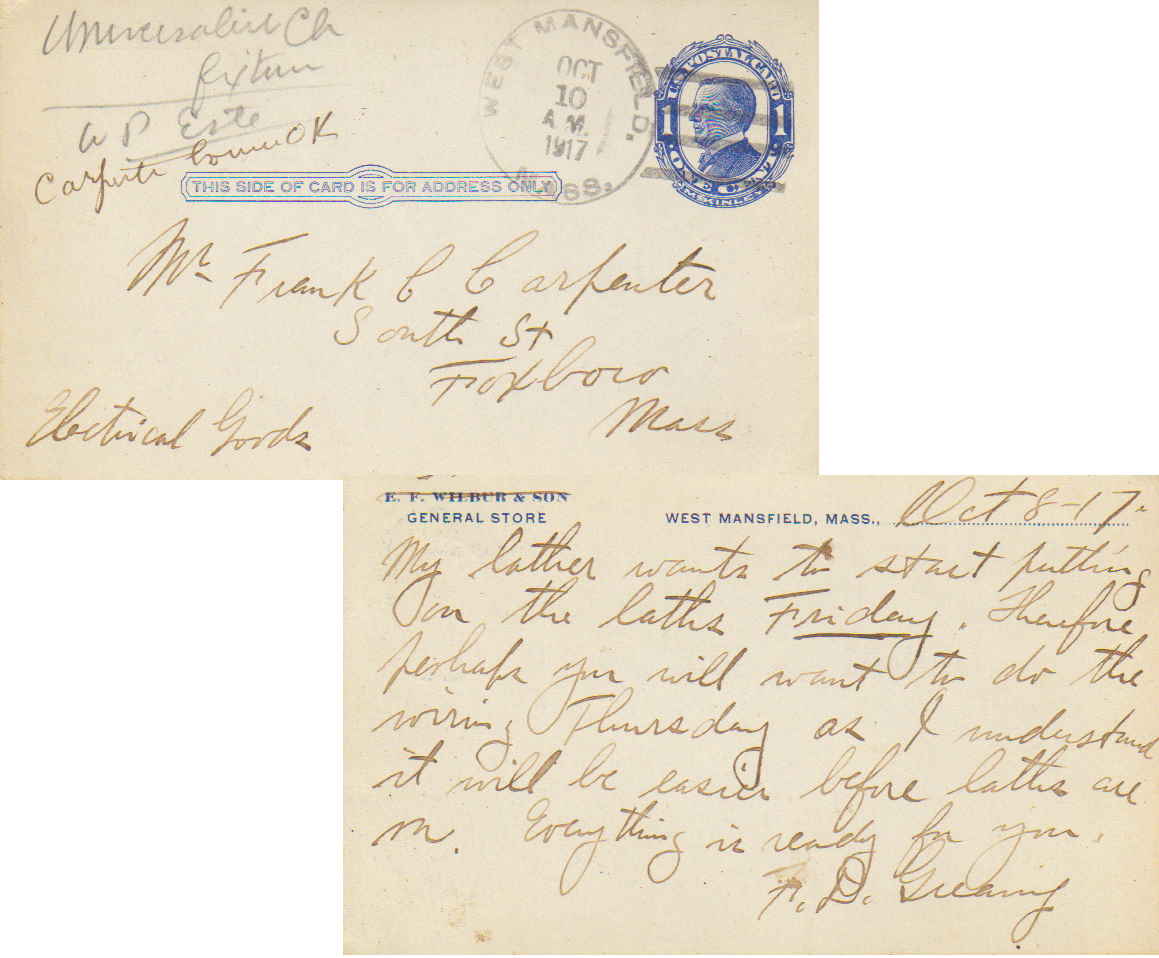 Universalist Ch
fixture
W P Este
Carpenter Comm OK
WEST MANSFIELD, MASS.
OCT
10
A.M.
1917
U.S. POSTAL CARD
1 1
ONE CENT
McKINLEY
THIS SIDE OF CARD IS FOR ADDRESS ONLY
Mr Frank C Carpenter
South St
Foxboro
Mass
Electrical Goods
E. F. WILBUR & SON
GENERAL STORE
WEST MANSFIELD, MASS., Oct 8-17.
My lather wants to start putting
on the laths Friday. Therefore
perhaps you will want to do the
wiring Thursday as I understand
it will be easier before laths are
on. Everything is ready for you.
F. D.